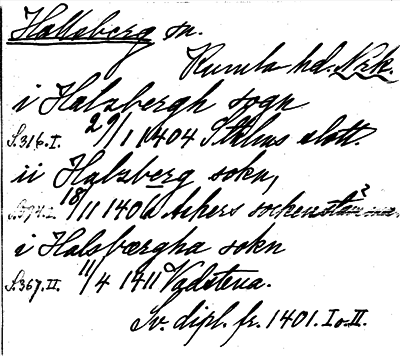 Hallsberg sn.
Kumla hd. Nrk.
i Halzbergh sogn
S.316.I. 29/1 1404 Sthlms slott.
ii Halzberg sokn,
18/11 1406 Askers socken
i Halsbærgha sokn
S.367.II. 11/4 1411 Vadstena.
Sv. dipl. fr. 1401. I o. II.